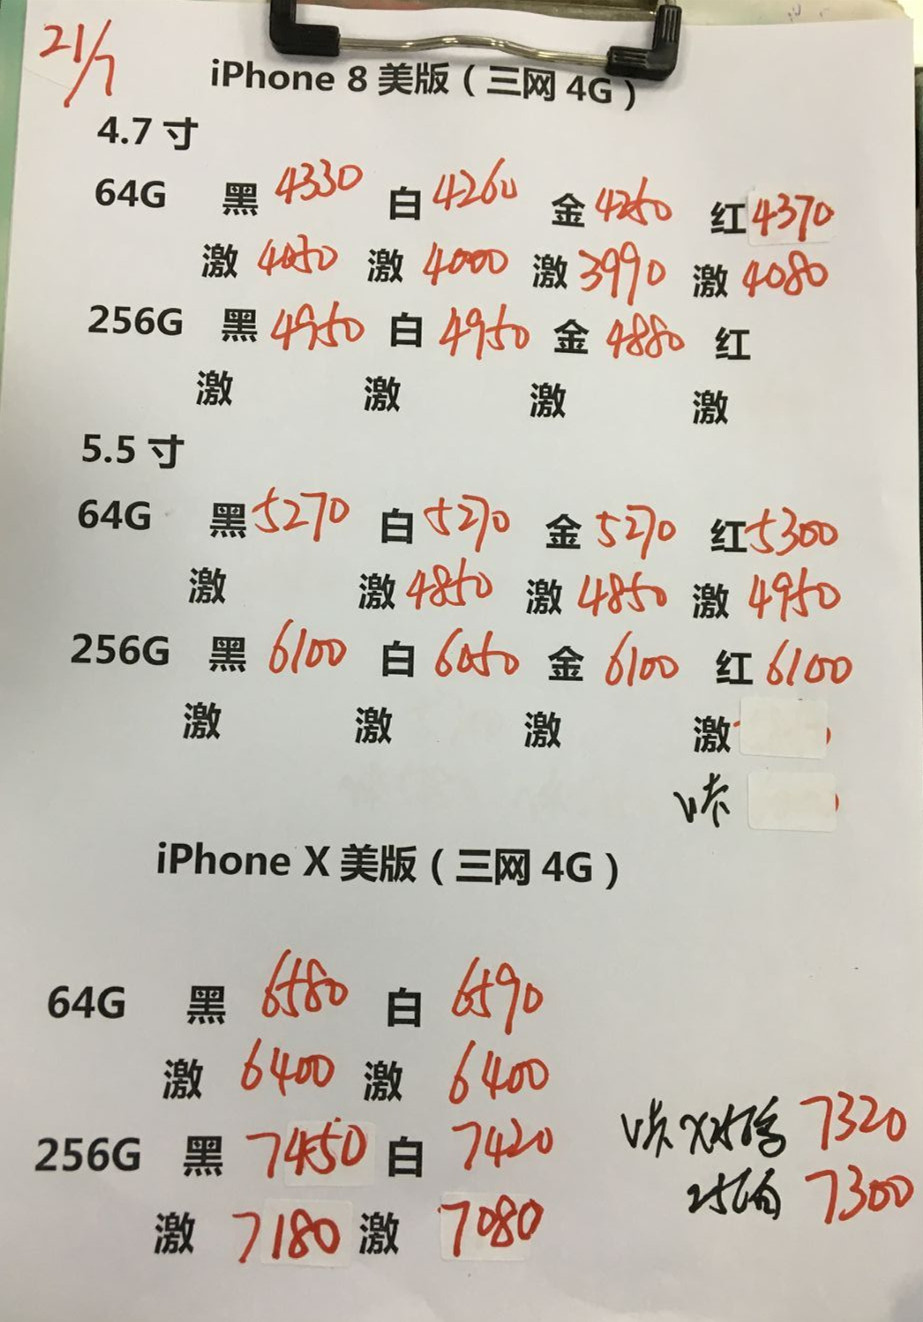 21/7
iPhone 8 美版（三网 4G）
4.7 寸
64G 黑 4330 白 4260 金 4250 红 4370
激 4050 激 4000 激 3990 激 4080
256G 黑 4950 白 4950 金 4880 红
激 激 激 激
5.5 寸
64G 黑 5270 白 5270 金 5270 红 5300
激 激 4850 激 4850 激 4950
256G 黑 6100 白 6050 金 6100 红 6100
激 激 激 激
咔
iPhone X 美版（三网 4G）
64G 黑 6580 白 6590
激 6400 激 6400
256G 黑 7450 白 7420
激 7180 激 7080
咔 X 256 7320
256白 7300